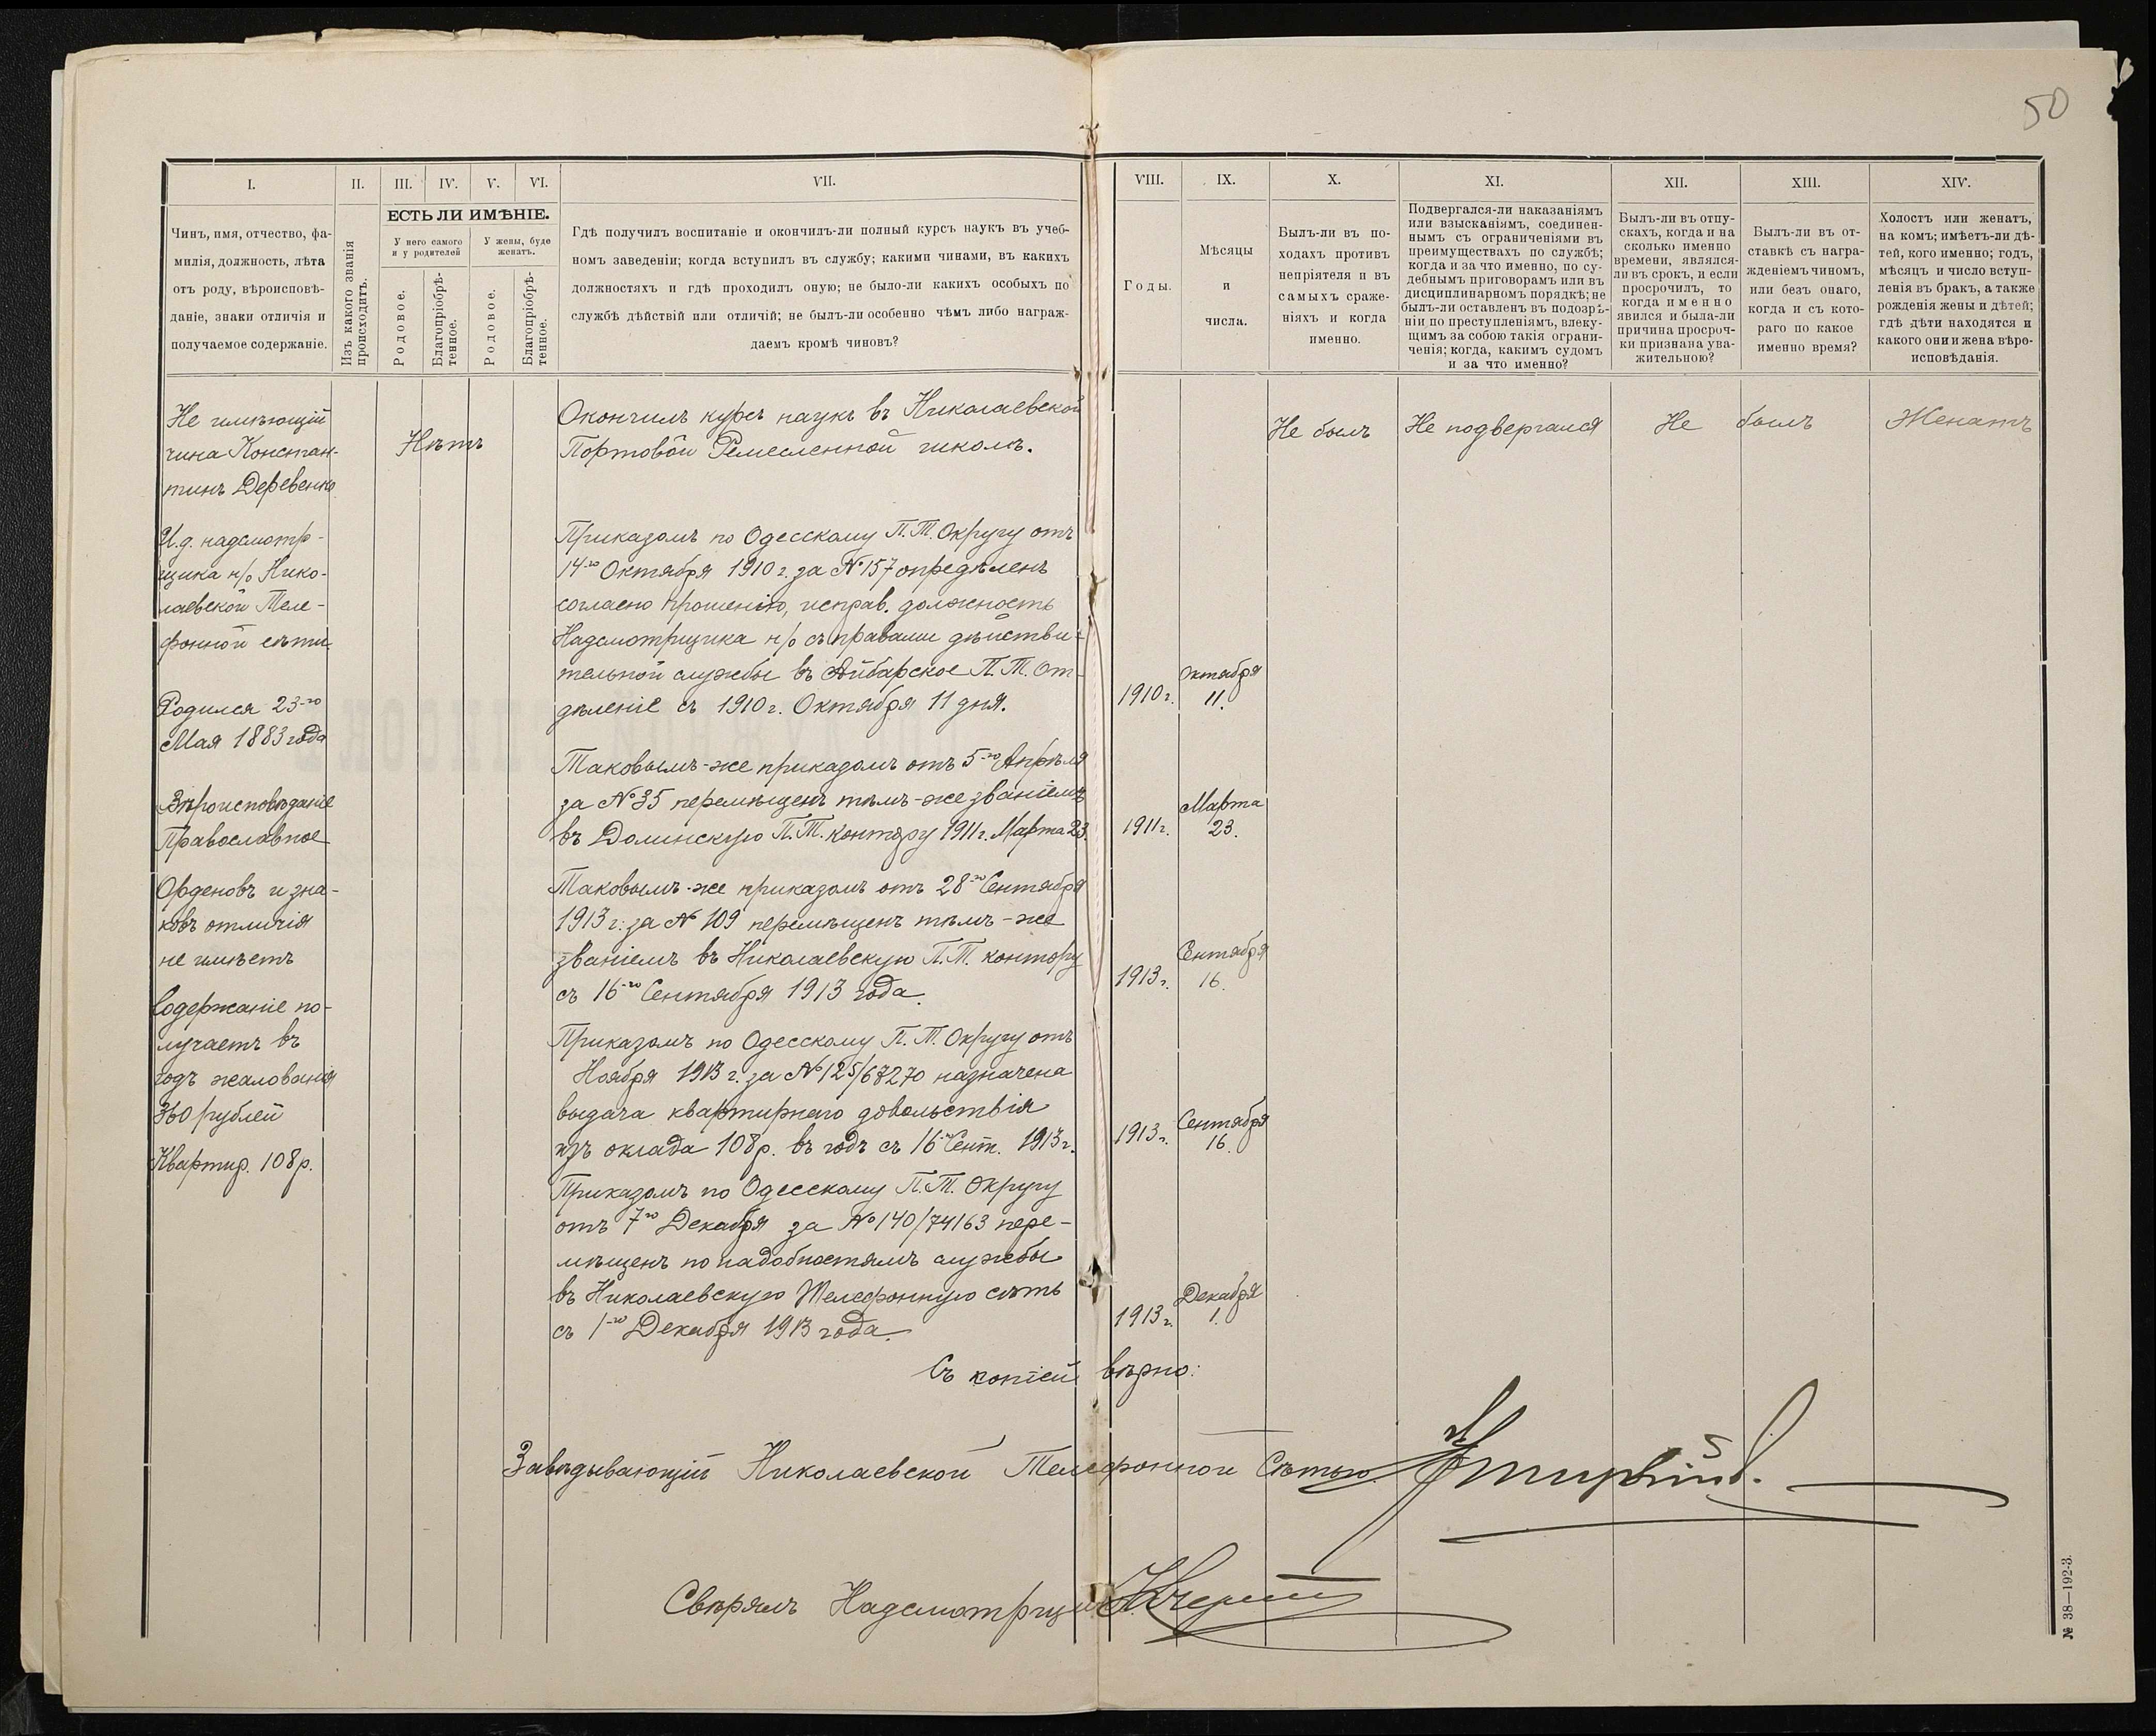 50
I.
II.
III.
IV.
V.
VI.
VII.
VIII.
IX.
X.
XI.
XII.
XIII.
XIV.
Чинъ, имя, отчество, фа-
милія, должность, лѣта
отъ роду, вѣроисповѣ-
даніе, знаки отличія и
получаемое содержаніе.
Изъ какого званія
происходитъ.
ЕСТЬ ЛИ ИМѢНІЕ.
У него самого
и у родителей
У жены, буде
женатъ.
Родовое.
Благопріобрѣ-
тенное.
Родовое.
Благопріобрѣ-
тенное.
Гдѣ получилъ воспитаніе и окончилъ-ли полный курсъ наукъ въ учеб-
номъ заведеніи; когда вступилъ въ службу; какими чинами, въ какихъ
должностяхъ и гдѣ проходилъ оную; не было-ли какихъ особыхъ по
службѣ дѣйствій или отличій; не былъ-ли особенно чѣмъ либо награж-
даемъ кромѣ чиновъ?
Годы.
Мѣсяцы
и
числа.
Былъ-ли въ по-
ходахъ противъ
непріятеля и въ
самыхъ сраже-
ніяхъ и когда
именно.
Подвергался-ли наказаніямъ
или взысканіямъ, соединен-
нымъ съ ограниченіями въ
преимуществахъ по службѣ;
когда и за что именно, по су-
дебнымъ приговорамъ или въ
дисциплинарномъ порядкѣ; не
былъ-ли оставленъ въ подозрѣ-
ніи по преступленіямъ, влеку-
щимъ за собою такія ограни-
ченія; когда, какимъ судомъ
и за что именно?
Былъ-ли въ отпу-
скахъ, когда и на
сколько именно
времени, являлся-
ли въ срокъ, и если
просрочилъ, то
когда именно
явился и была-ли
причина просроч-
ки признана ува-
жительною?
Былъ-ли въ от-
ставкѣ съ награ-
жденіемъ чиномъ,
или безъ онаго,
когда и съ кото-
раго по какое
именно время?
Холостъ или женатъ,
на комъ; имѣетъ-ли дѣ-
тей, кого именно; годъ,
мѣсяцъ и число вступ-
ленія въ бракъ, а также
рожденія жены и дѣтей;
гдѣ дѣти находятся и
какого они и жена вѣро-
исповѣданія.
Не имѣющій
чина Констан-
тинъ Деревенко
И.д. надсмотр-
щика н/о Нико-
лаевской Теле-
фонной сѣти.
Родился 23-го
Мая 1883 года
Вѣроисповѣданіе
Православное
Орденовъ и зна-
ковъ отличія
не имѣетъ
Содержаніе по-
лучаетъ въ
годъ жалованія
360 рублей
Квартир. 108 р.
Нѣтъ
Окончилъ курсъ наукъ въ Николаевской
Портовой Ремесленной школѣ.
Приказомъ по Одесскому П.Т. Округу отъ
14-го Октября 1910 г. за № 157 опредѣленъ
согласно прошенію, исправ. должность
Надсмотрщика н/о съ правами дѣйстви-
тельной службы въ Айбарское П.Т. От-
дѣленіе съ 1910 г. Октября 11 дня.
Таковымъ-же приказомъ отъ 5-го Апрѣля
за № 35 перемѣщенъ тѣмъ-же званіемъ
въ Долинскую П.Т. контору 1911 г. Марта 23.
Таковымъ-же приказомъ отъ 28-го Сентября
1913 г. за № 109 перемѣщенъ тѣмъ-же
званіемъ въ Николаевскую П.Т. контору
съ 16-го Сентября 1913 года.
Приказомъ по Одесскому П.Т. Округу отъ
Ноября 1913 г. за № 125/67270 назначена
выдача квартирнаго довольствія
изъ оклада 108 р. въ годъ съ 16 Сент. 1913 г.
Приказомъ по Одесскому П.Т. Округу
отъ 7-го Декабря за № 140/74163 пере-
мѣщенъ по надобностямъ службы
въ Николаевскую Телефонную сѣть
съ 1-го Декабря 1913 года.
1910 г.
Октября
11.
1911 г.
Марта
23.
1913 г.
Сентября
16.
1913 г.
Сентября
16.
1913 г.
Декабря
1.
Не былъ
Не подвергался
Не былъ
Женатъ
Съ копіей вѣрно:
Завѣдывающій Николаевской Телефонной Сѣтью
Свѣрялъ Надсмотрщикъ
№ 38—192-3.